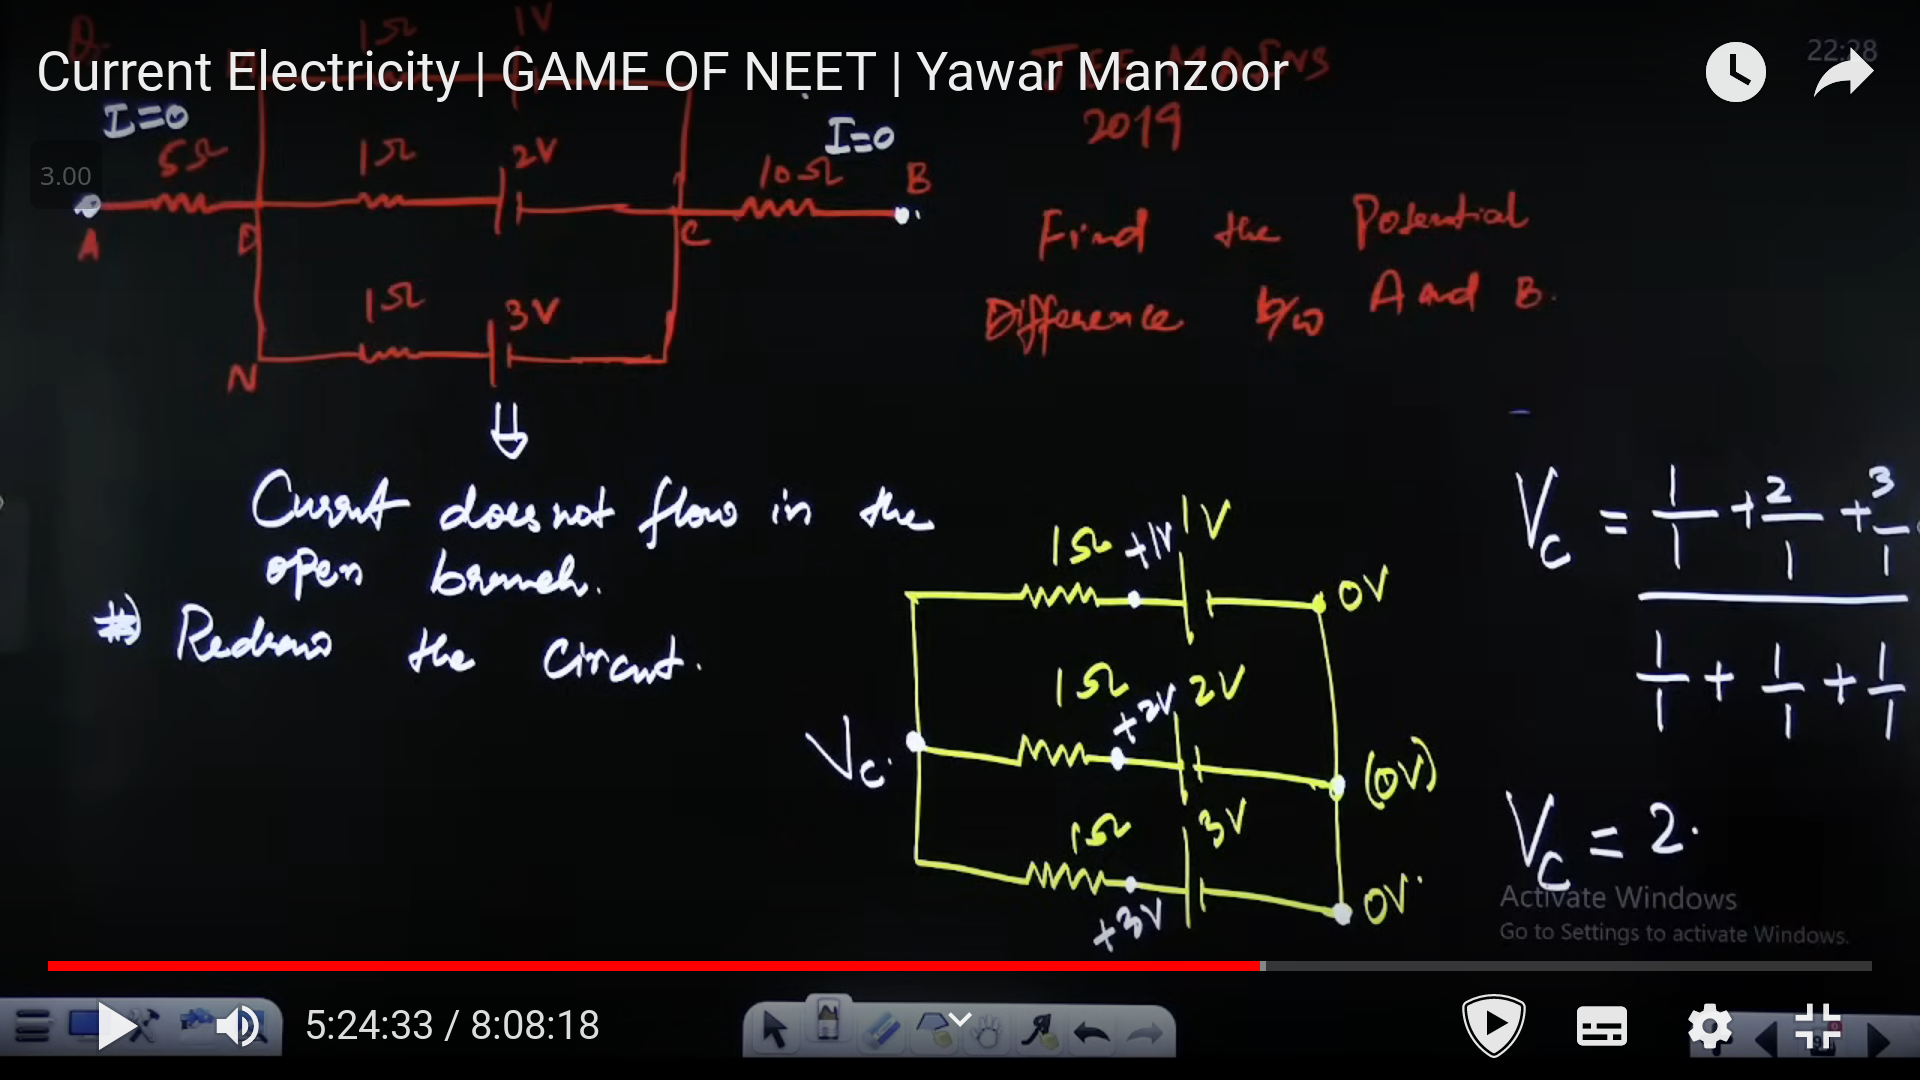 Current Electricity | GAME OF NEET | Yawar Manzoor
22:28
Q.
1Ω 1V
JEE Mains
2019
I=0
I=0
3.00
5Ω 1Ω 2V 10Ω B
A D C
1Ω 3V
N
Find the Potential
Difference b/w A and B.
⇓
Current does not flow in the
open branch.
#) Redraw the circuit.
1Ω +1V 1V
0V
1Ω +2V 2V
Vc.
(0V)
1Ω 3V
+3V
0V.
Vc = 1/1 + 2/1 + 3/1
1/1 + 1/1 + 1/1
Vc = 2.
Activate Windows
Go to Settings to activate Windows.
5:24:33 / 8:08:18